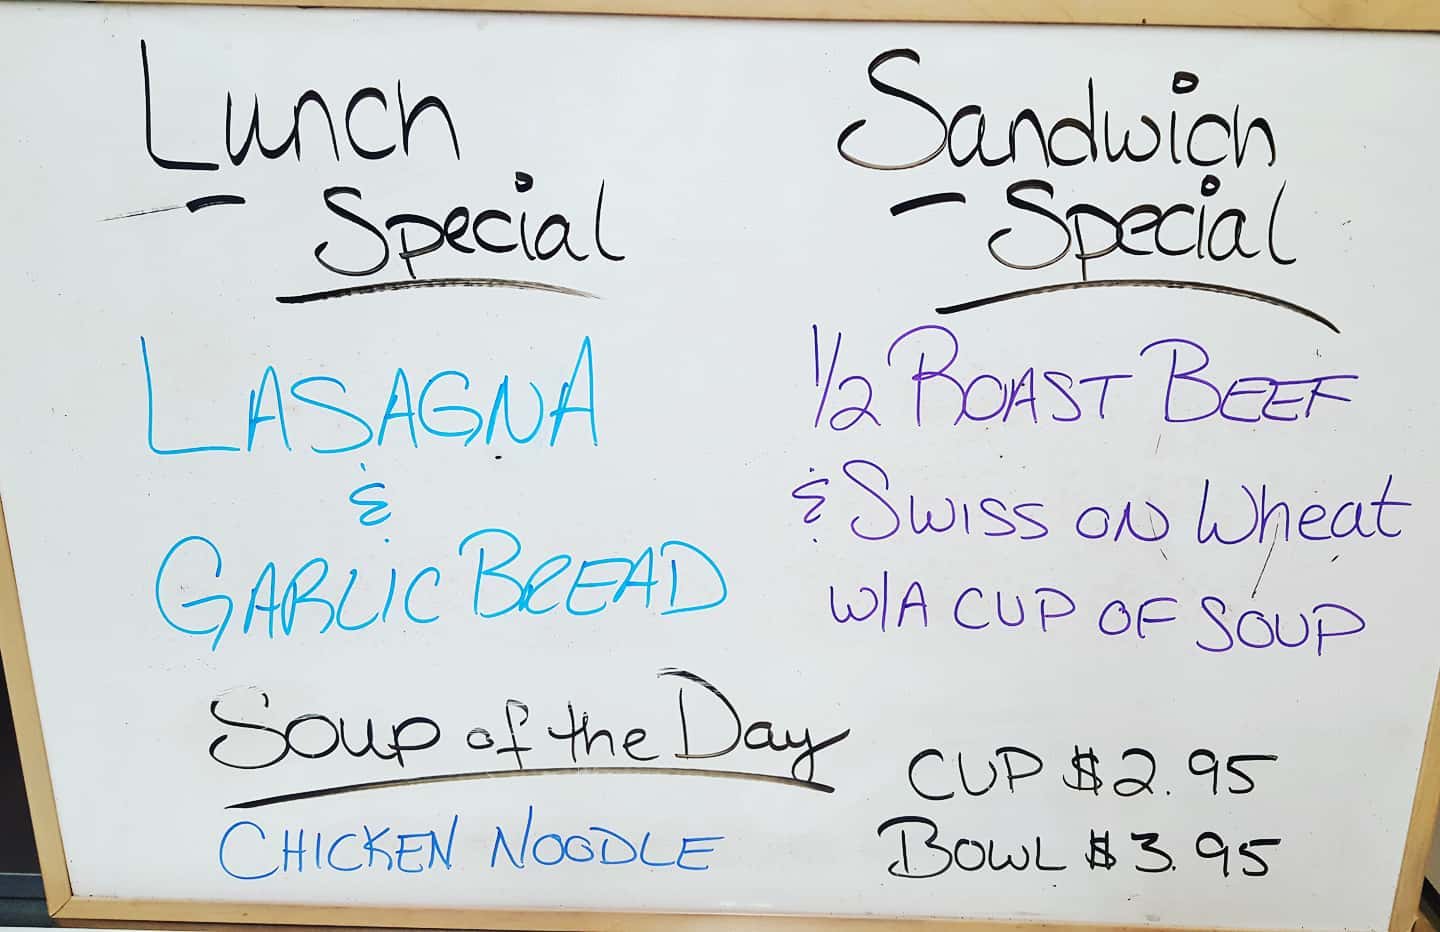 Lunch
- Special
LASAGNA
&
GARLIC BREAD
Sandwich
- Special
1/2 ROAST BEEF
& SWISS ON Wheat
W/A CUP OF SOUP
Soup of the Day
CHICKEN NOODLE
CUP $2.95
BOWL $3.95